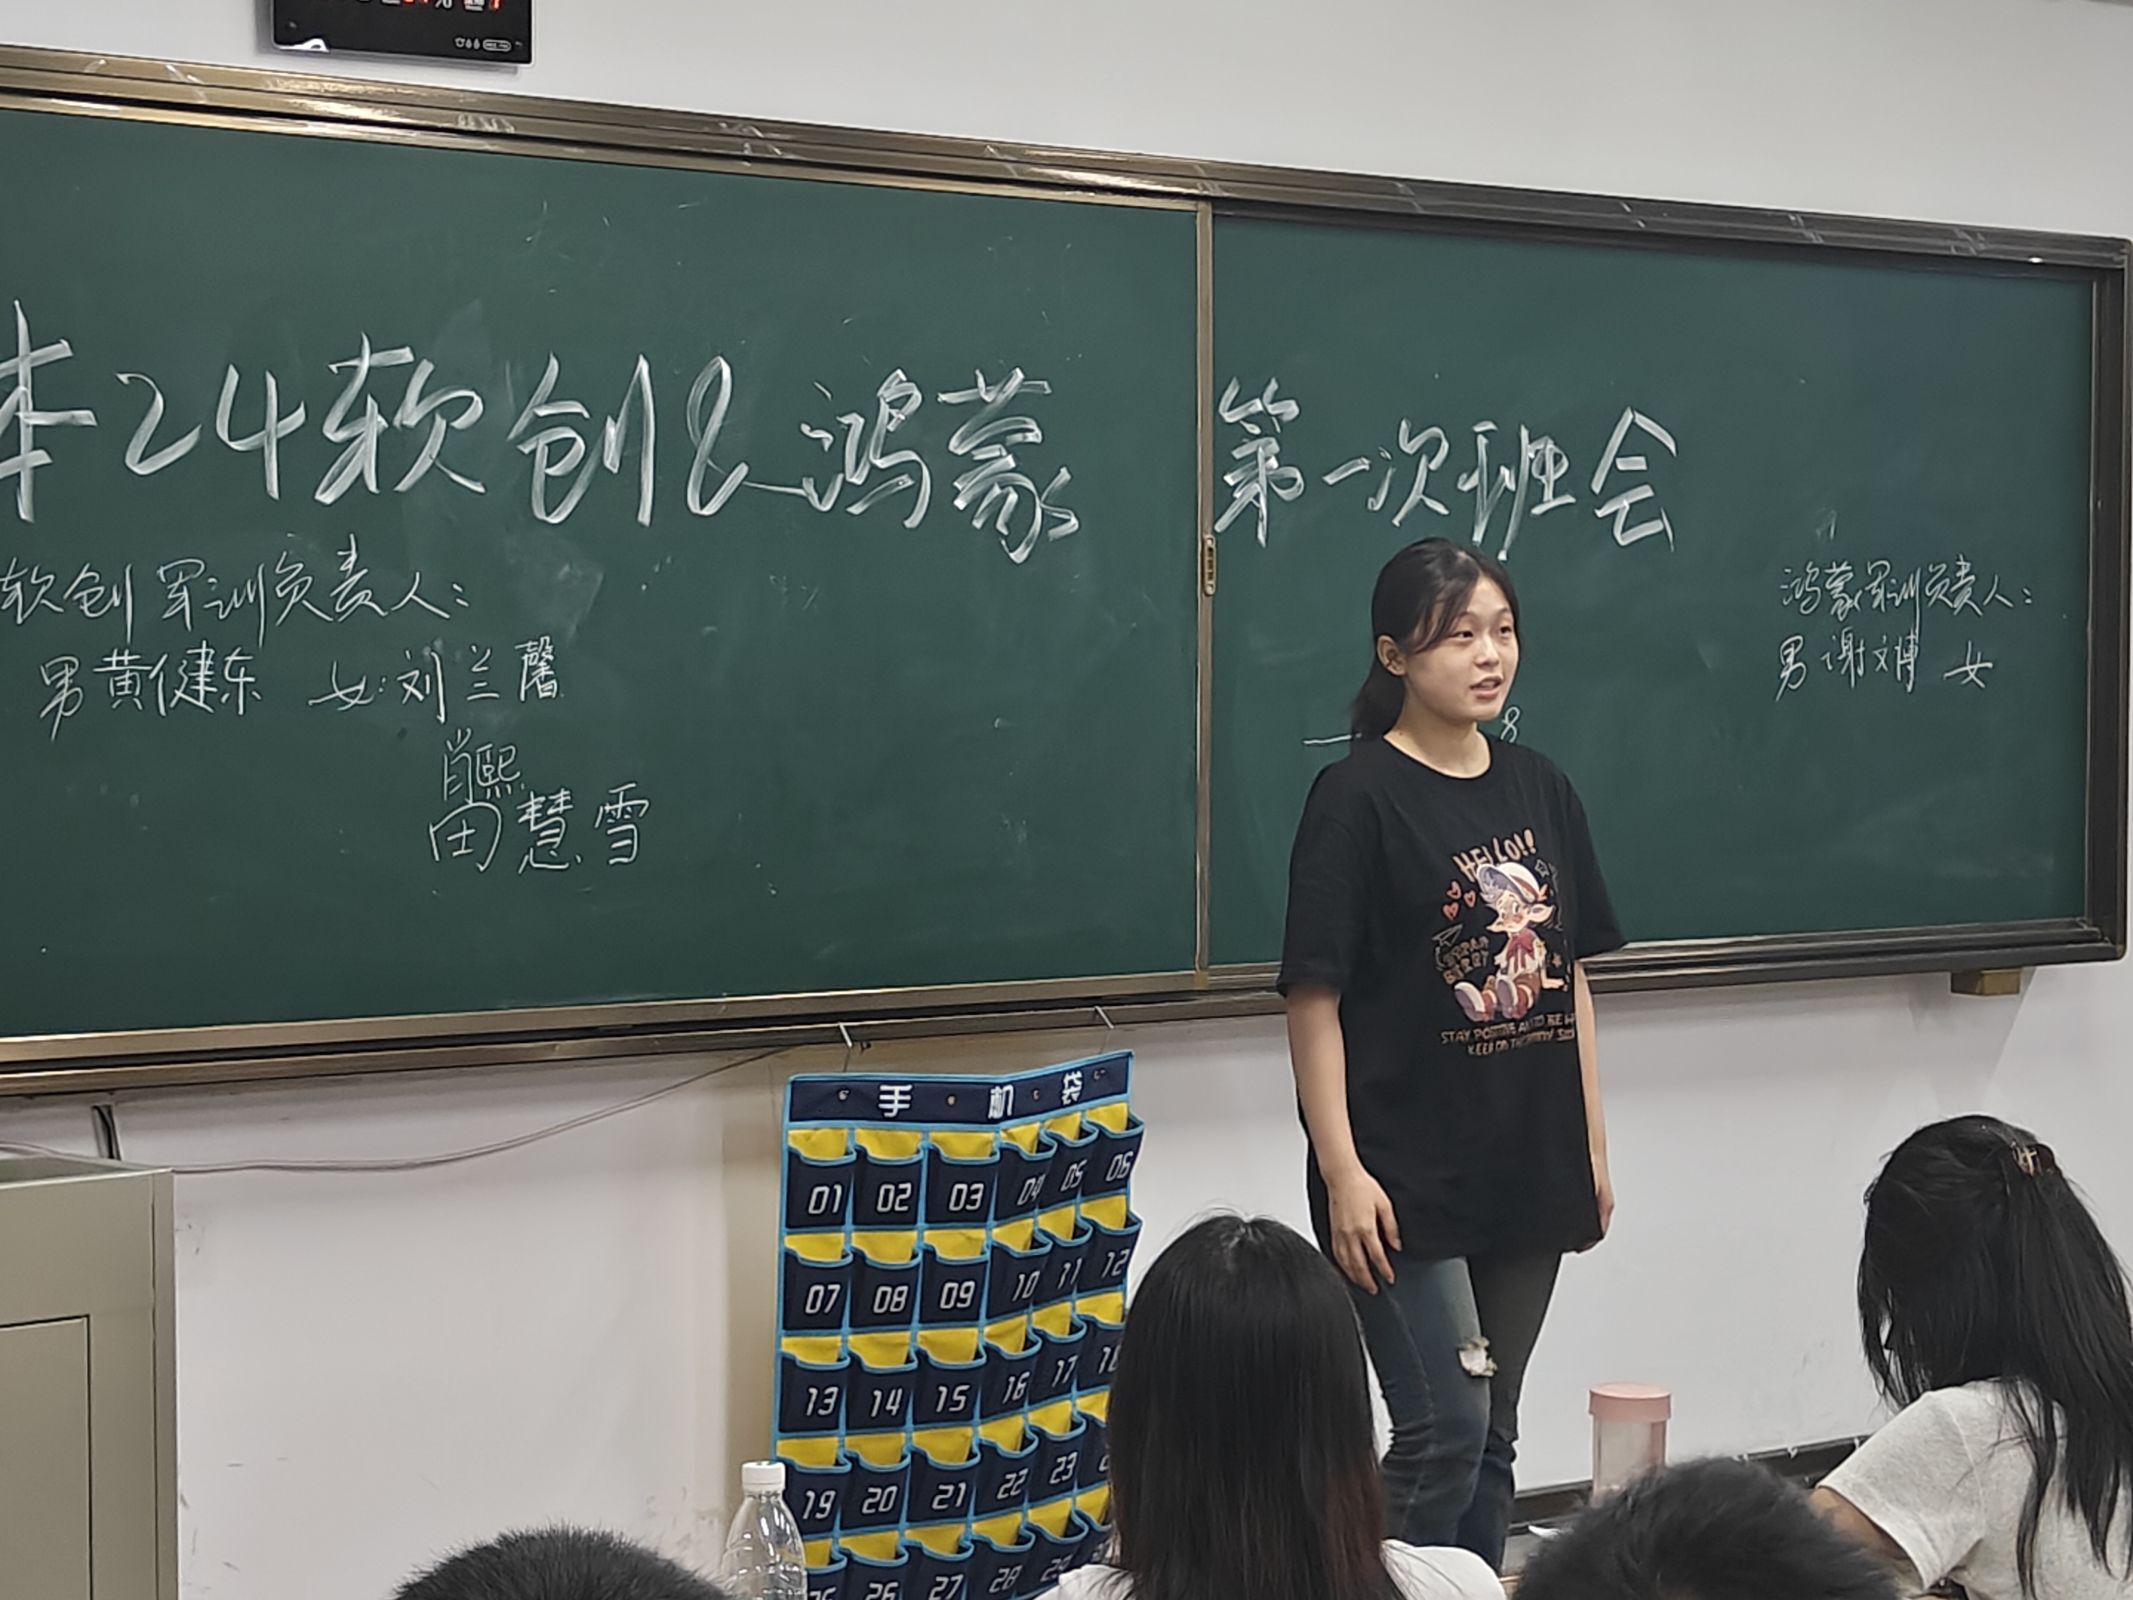 本24软创&鸿蒙 第一次班会
软创军训负责人：
男黄健东 女：刘兰馨
肖熙
田慧雪
鸿蒙军训负责人：
男谢文博 女
8
HELLO!!
STAY POSITIVE AND BE H
KEEP ON THE SUNNY SID
手机袋
01 02 03 04 05 06
07 08 09 10 11 12
13 14 15 16 17 18
19 20 21 22 23
25 26 27 28 29